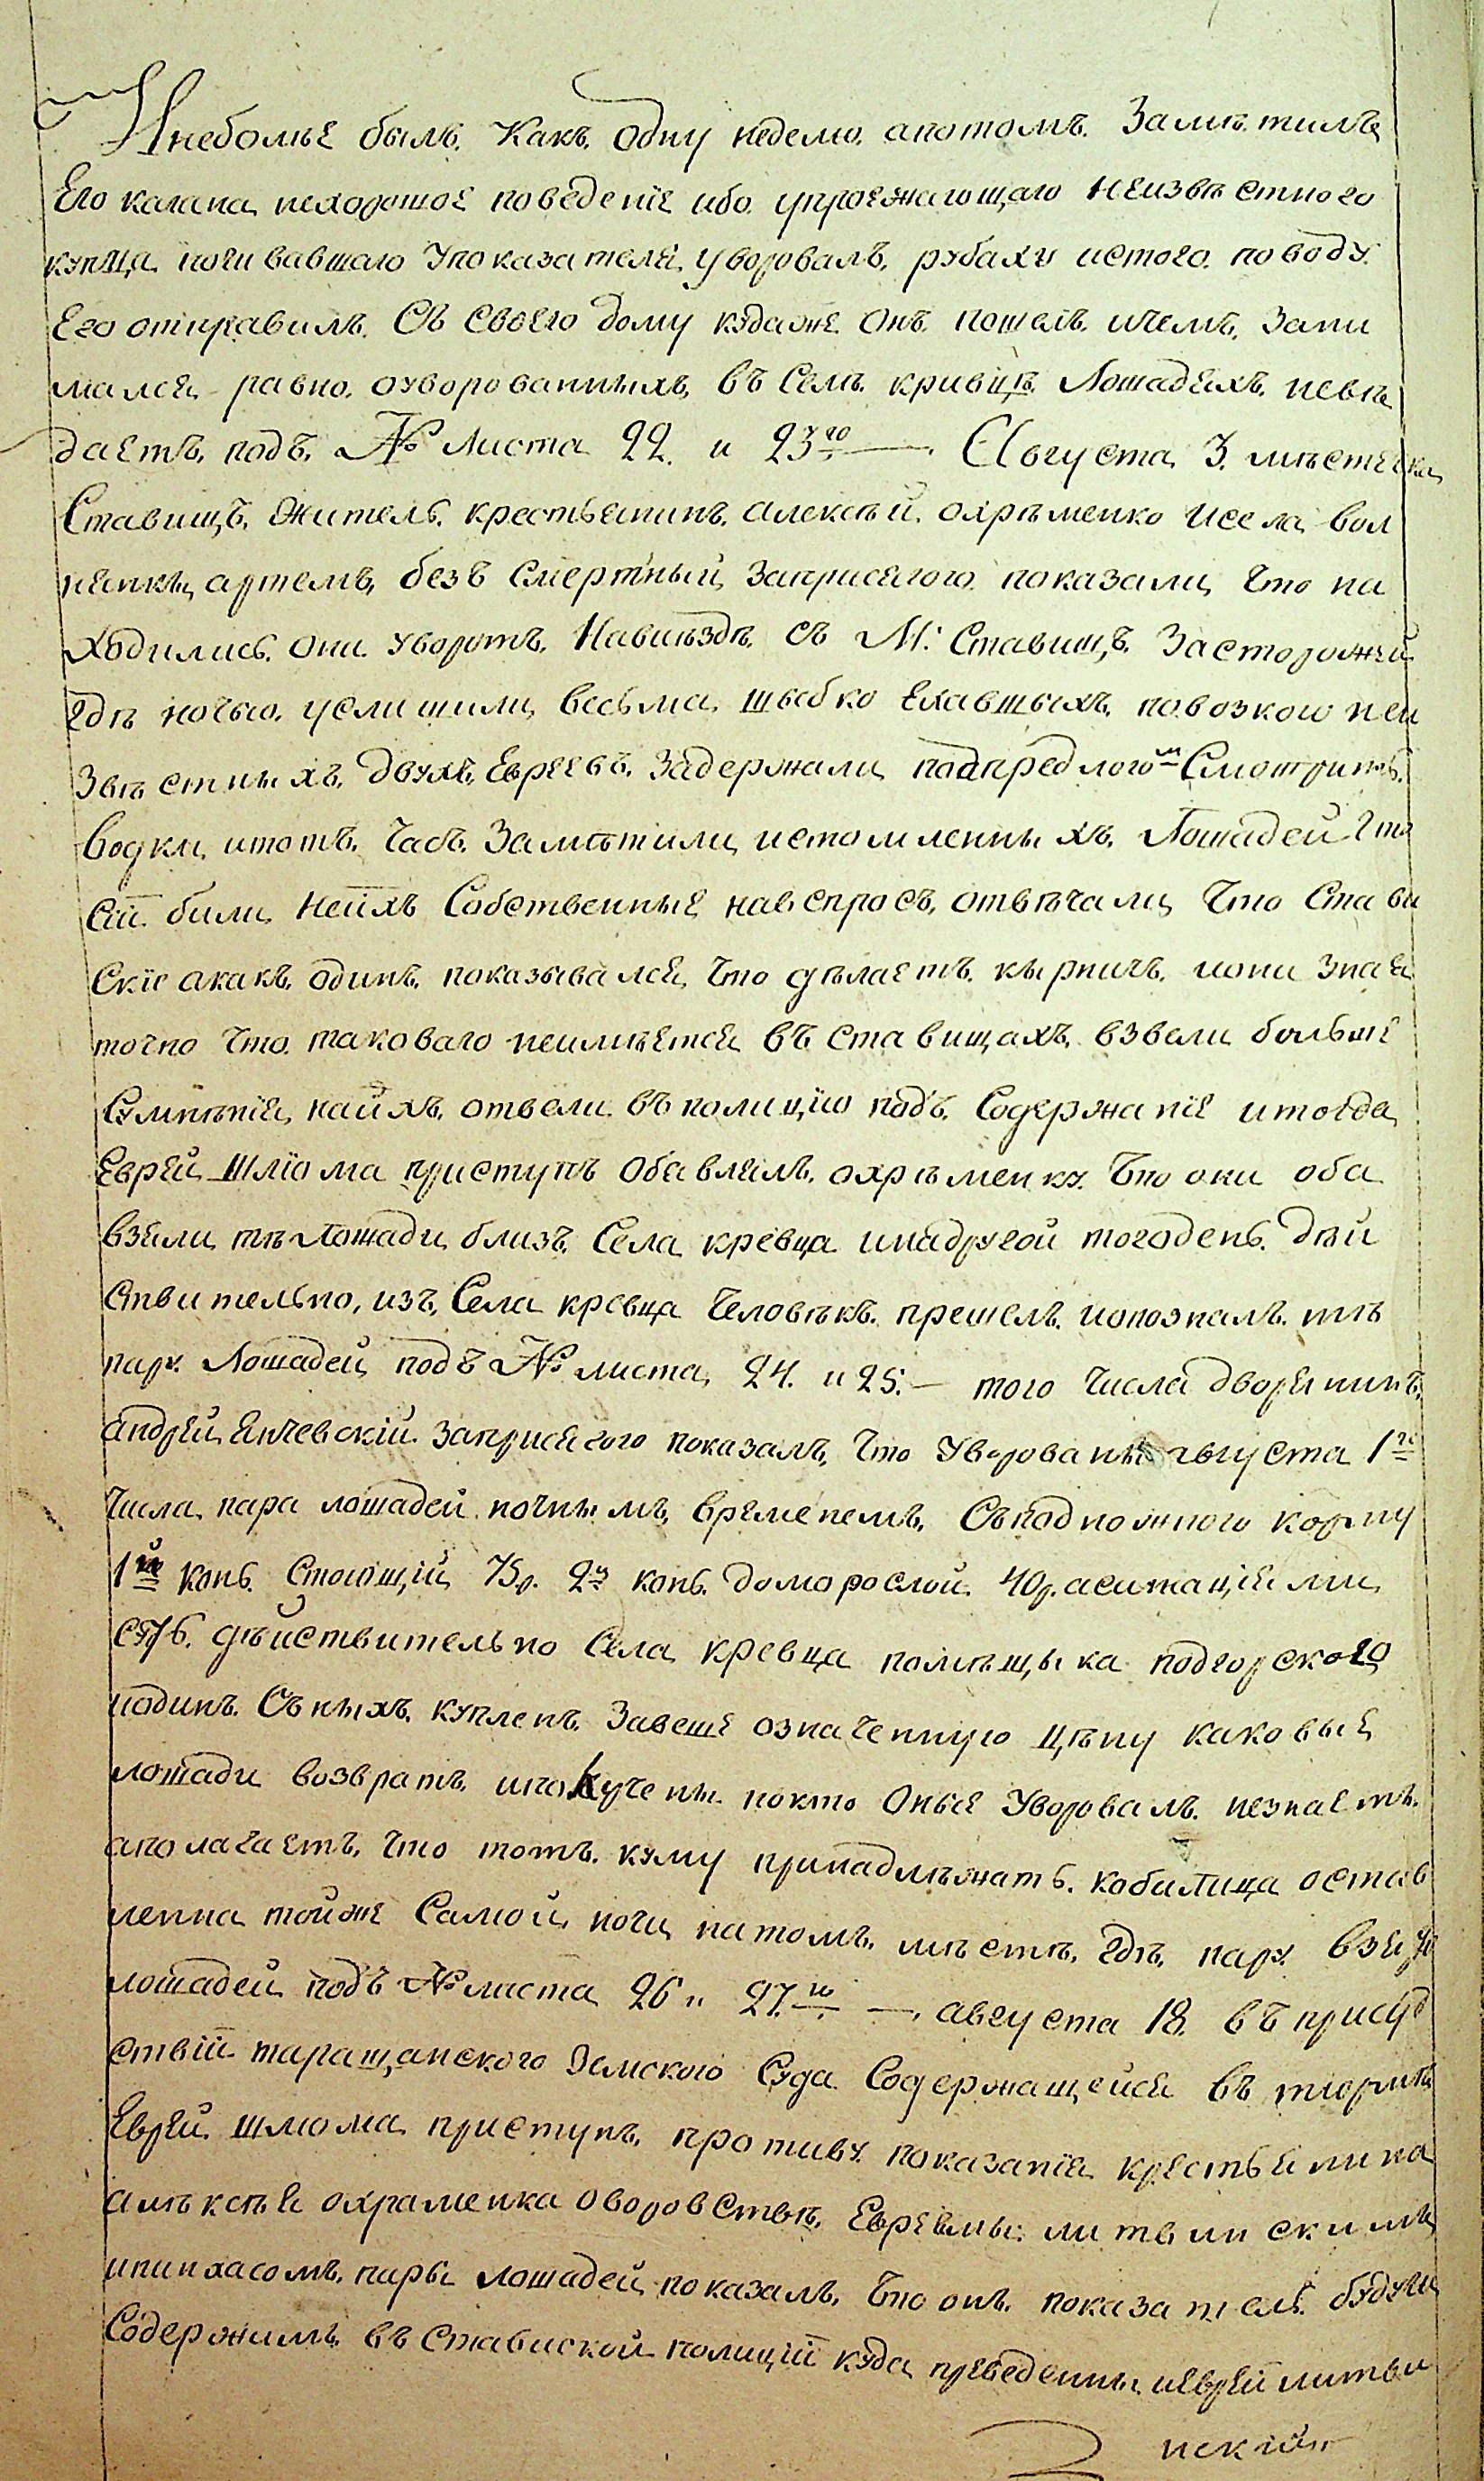 Инеболѣе былъ. Какъ. Одну неделю. апотомъ. Замѣтилъ
Его канана нехорошое поведеніе ибо упроезжающаго неизвѣстного
купца ночивавшаго Упоказателя, уворовалъ. рубаху истого. поводу.
Его отправилъ. Съ своего дому кудаже Онъ. пошелъ. ичемъ. Зани
мался равно. оуворованныхъ въ Селѣ кривцѣ Лошадяхъ. невѣ
даетъ. подъ. № листа 22. и 23го —. Августа 3. мѣстечка
Ставищъ. житель. крестьянинъ. алексѣй. охрѣменко исела вол
нянки, артемъ, безъ Смертный заприсягою показали, что на
ходились. они уворотъ. Навиѣздѣ. съ М: Ставищъ. Засторожей
гдѣ ночью. услишили, весьма. шыбко Ехавшыхъ. повозкою неи
звѣстныхъ. двухъ. Евреевъ. Задержали подпредлогомъ Смотрить.
водки, итотъ. Часъ. Замѣтили, истомленныхъ. Лошадей что
сіи били, неихъ Собственные, навспросъ, отвѣчали, что Стави
Скіе акакъ. одинъ. показывался, что дѣлаетъ. кырпичъ. иони зная
точно что. таковаго неимѣется въ ставищахъ, взвели больше
Сумнѣнія, наихъ, отвели. въ полицію подъ. Содержаніе итогда,
Еврей Шліома приступъ Обявлялъ. охрѣменку. Что они оба
взяли, тѣ Лошади, близъ. Села кревца инадругой тогодень. дѣй
ствительно, изъ, Села кревца Человѣкъ. прешелъ. иопозналъ. тѣ
пару. Лошадей, подъ № листа, 24. и 25.— того Числа дворянинъ.
андрей, Янчевскій. заприсягою показалъ, что Уворованы августа 1го
Числа. пара лошадей. почнымъ, временемъ. Съподножного корму
1й конь. Стоющій 75р. 2й конь. доморослой. 40р. асиггаціями
суть. дѣйствительно Села кревца помѣщыка подгорского
иодинъ. Съ ныхъ. купленъ. Завеше означенную цѣну каковые,
лошади возвратъ. иполучены. нокто Оные Уворовалъ. незнаетъ.
аполагаетъ. что тотъ. кому принадлѣжать. кобилица остав
ленна тойже Самой, ночи, натомъ. мѣстѣ. гдѣ. пару. взято
лошадей, подъ № листа 26 и 27.го —. августа 18. въ присуд
ствіи таращанского Земского Суда Содержащейся въ тюрмѣ
Еврей. шлиома приступъ. противу. показанія крестьянина
алѣксѣя охраменка оворовствѣ. Евреямы: литвинскимъ,
ипинхасомъ. пары лошадей, показалъ. что онъ. показатель. будучи,
Содержимъ. въ Ставиской полиціи куда, преведенны. иеврей литви
нскій